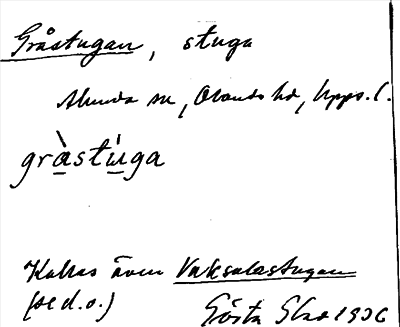 Gråstugan, stuga
Alunda sn, Olands hd, Upps. l.
gràstùga
Kallas även Vaksalastugan
(se d. o.)
Gösta 1936